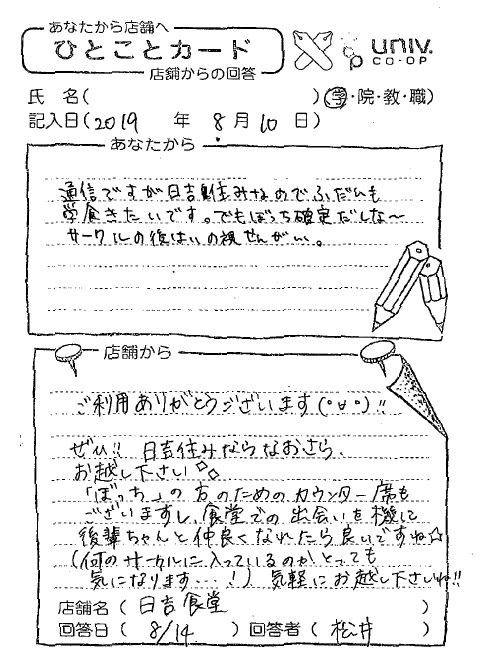 あなたから店舗へ
ひとことカード
店舗からの回答
univ.
CO-OP
氏 名( )(学・院・教・職)
記入日(2019 年 8月10日)
あなたから
通信ですが日吉住みなのでふだんも
学食きたいです。でもぼっち確実だしな〜
サークルの後はいの視せんが…。
店舗から
ご利用ありがとうございます(°∀°)!!
ぜひ!! 日吉住みならなおさら、
お越し下さい☆
「ぼっち」の方のためのカウンター席も
ございますし、食堂での出会いを機に
後輩ちゃんと仲良くなれたら良いですね☆
(何のサークルに入っているのかとっても
気になります…!) 気軽にお越し下さいね!!
店舗名( 日吉食堂 )
回答日( 8/14 )回答者( 松井 )